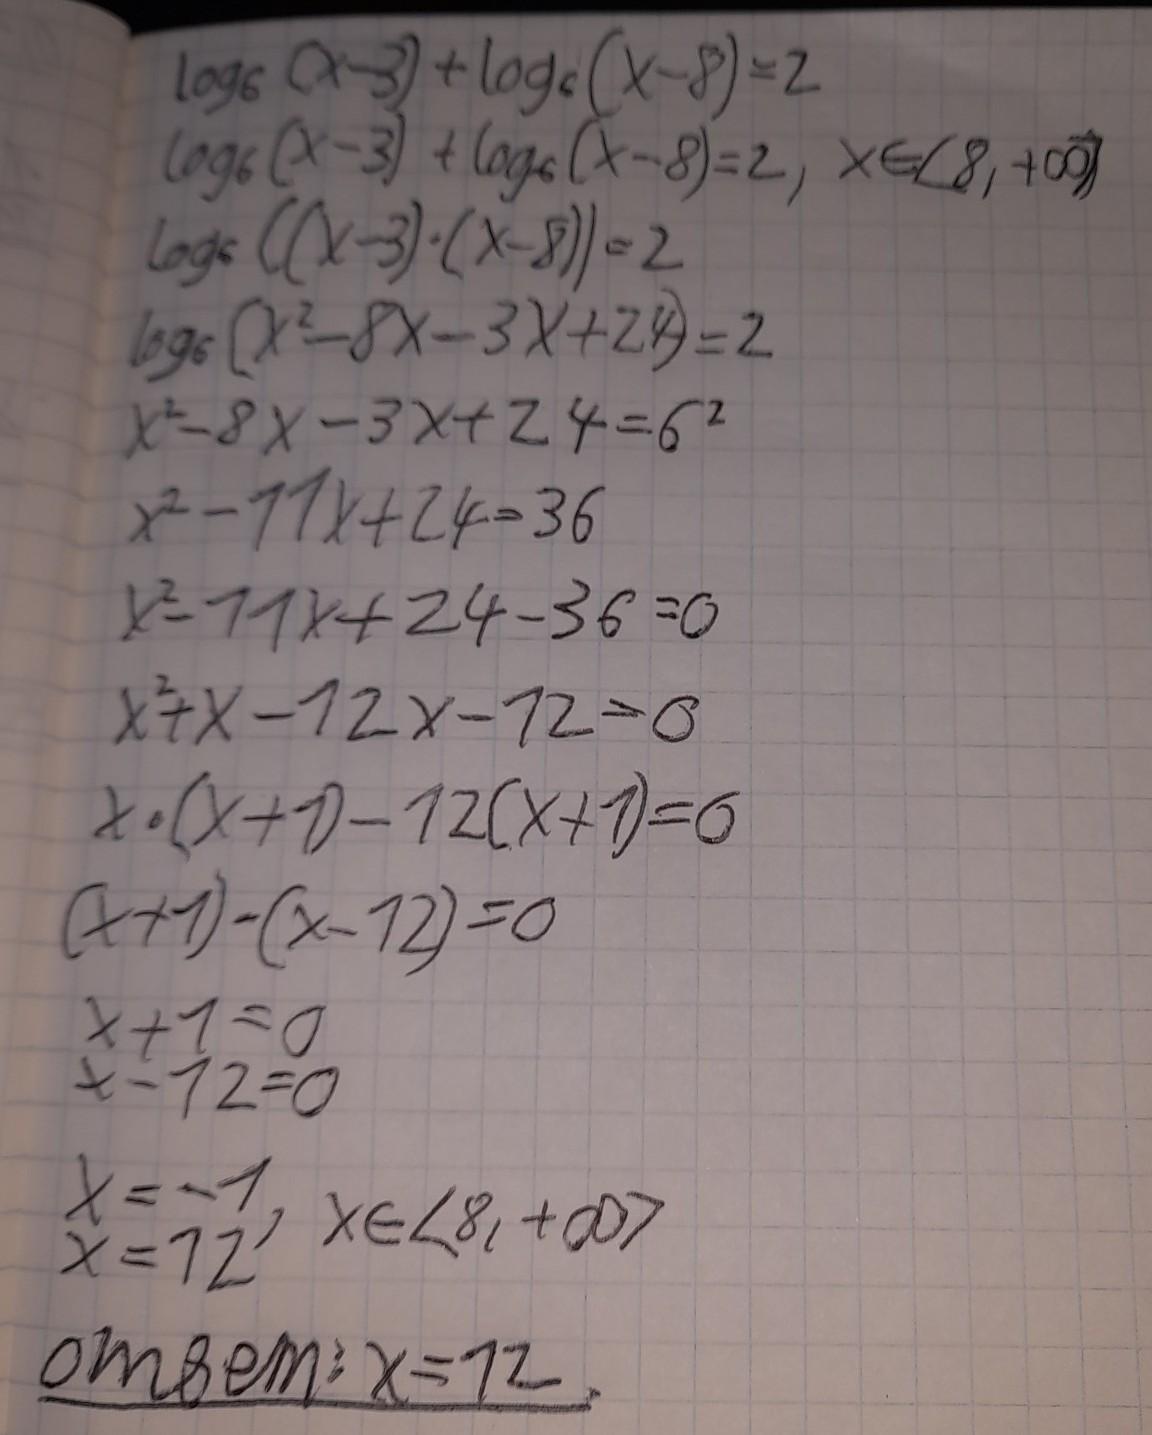 log₆(x-3)+log₆(x-8)=2
log₆(x-3)+log₆(x-8)=2, x∈⟨8,+∞⟩
log₆((x-3)·(x-8))=2
log₆(x²-8x-3x+24)=2
x²-8x-3x+24=6²
x²-11x+24=36
x²-11x+24-36=0
x²+x-12x-12=0
x·(x+1)-12(x+1)=0
(x+1)-(x-12)=0
x+1=0
x-12=0
x=-1
x=12, x∈⟨8,+∞⟩
ответ: x=12.